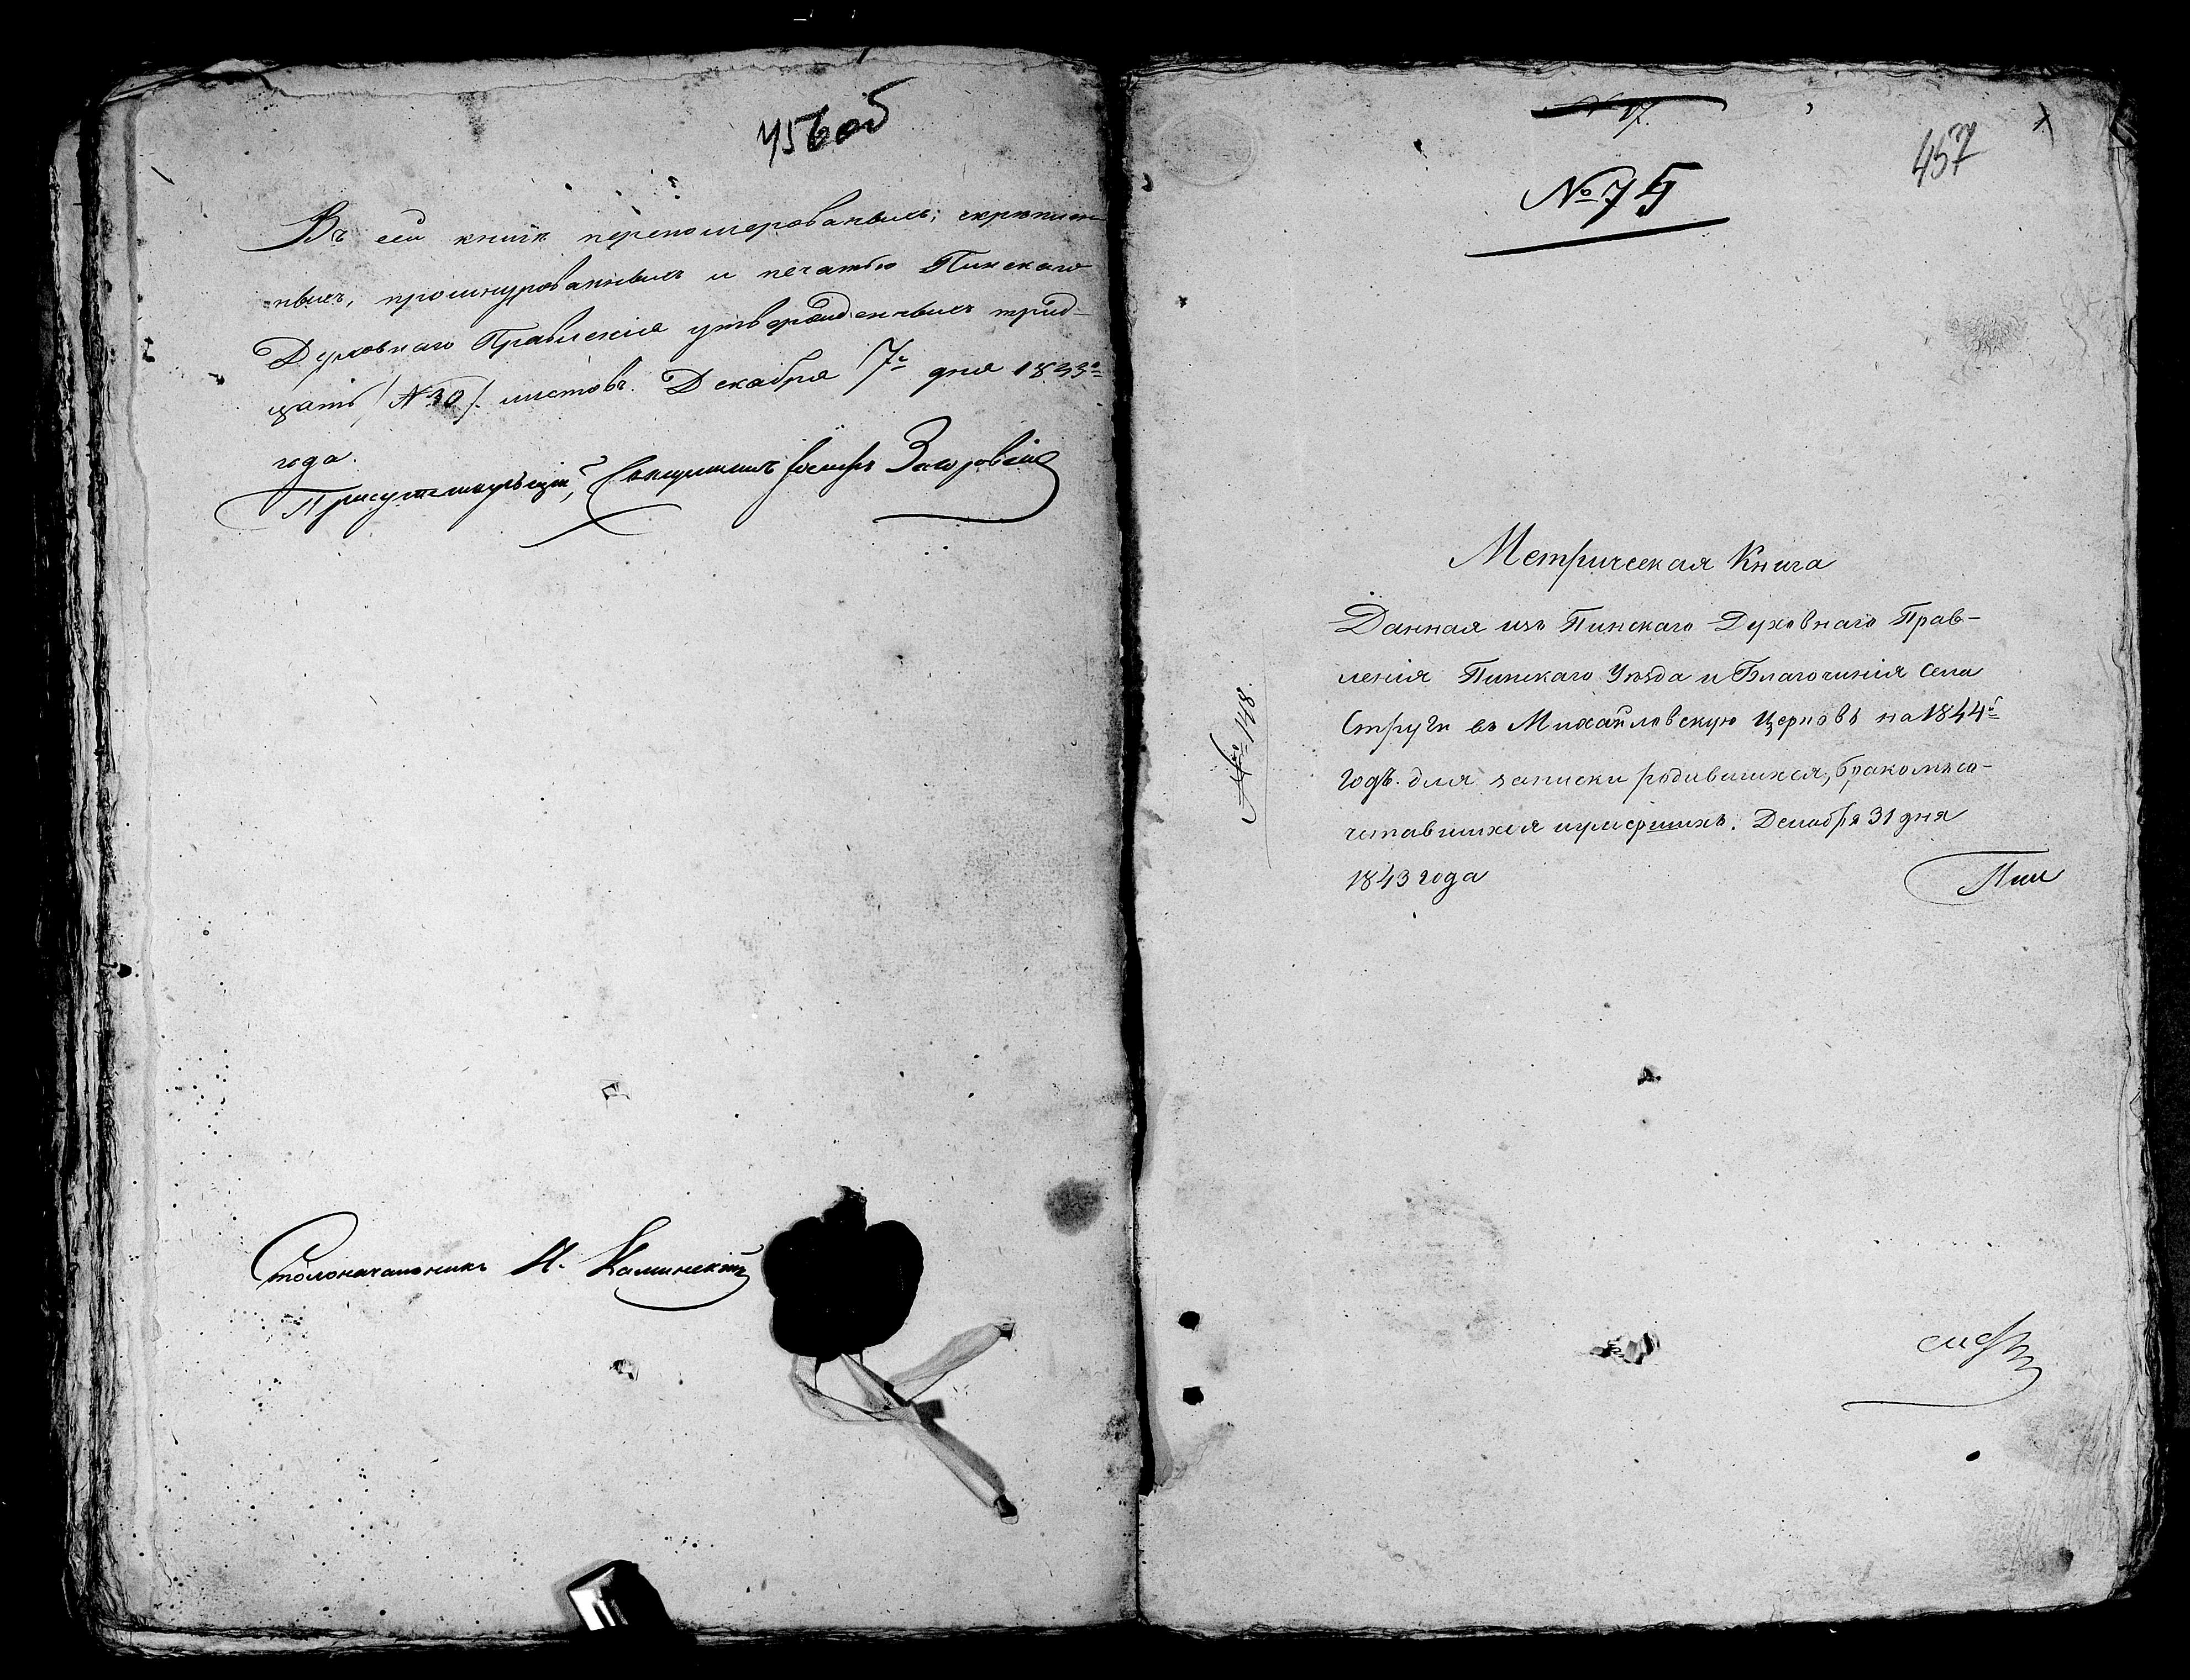 456 об
Въ сей книгѣ переномерованыхъ, скрѣплен-
ныхъ, прошнурованныхъ и печатью Пинскаго
Духовнаго Правленія утвержденныхъ трид-
цать /№ 30/. листовъ. Декабря 7го дня 1843го
года.
Присутствующій, Священникъ Іосифъ
Столоначальникъ Калинскій
№ 75
457
№ 148.
Метрическая Книга
Данная изъ Пинскаго Духовнаго Прав-
ленія Пинскаго Уѣзда и Благочинія Села
Струги въ Михайловскую Церковь на 1844й
годъ. для записки родившихся, бракомъ со-
четавшихся и умершихъ. Декабря 31 дня
1843 года
Пин